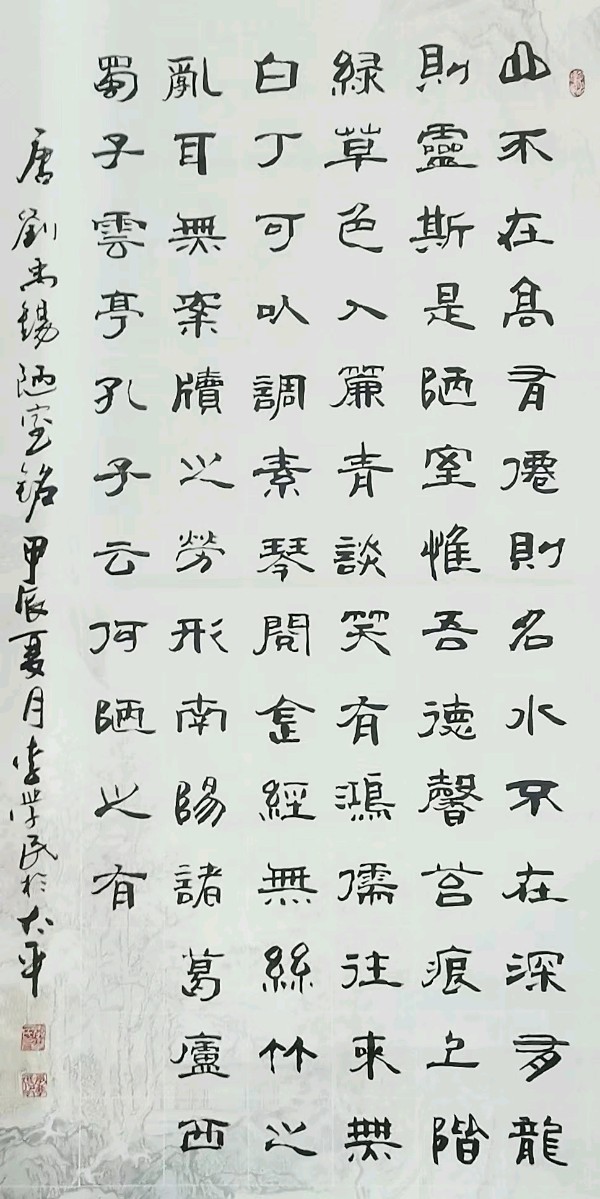 山不在髙有僊則名水不在深有龍
則靈斯是陋室惟吾德馨苔痕上階
緑草色入簾青談笑有鴻儒往來無
白丁可以調素琴閱金經無絲竹之
亂耳無案牘之勞形南陽諸葛廬西
蜀子雲亭孔子云何陋之有
唐劉禹錫陋室銘甲辰夏月李學民於太平